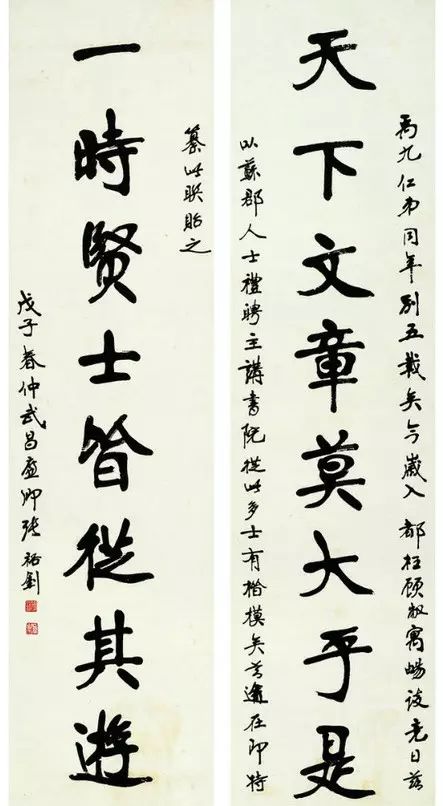 禹九仁弟同年別五載矣今歲入 都枉顧敝寓暢談竟日茲
天下文章莫大乎是
以蘇郡人士禮聘主講書院從此多士有楷模矣首途在即特
纂此联貽之
一時賢士皆從其遊
戊子春仲武昌廉卿張裕釗